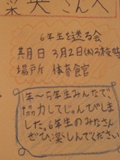 菜央さんへ
6年生を送る会
期日 3月2日(水)3校時
場所 体育館
年〜5年生みんなで、
協力してじゅんびしま
した。6年生のみなさん
ぜひ楽しんでください